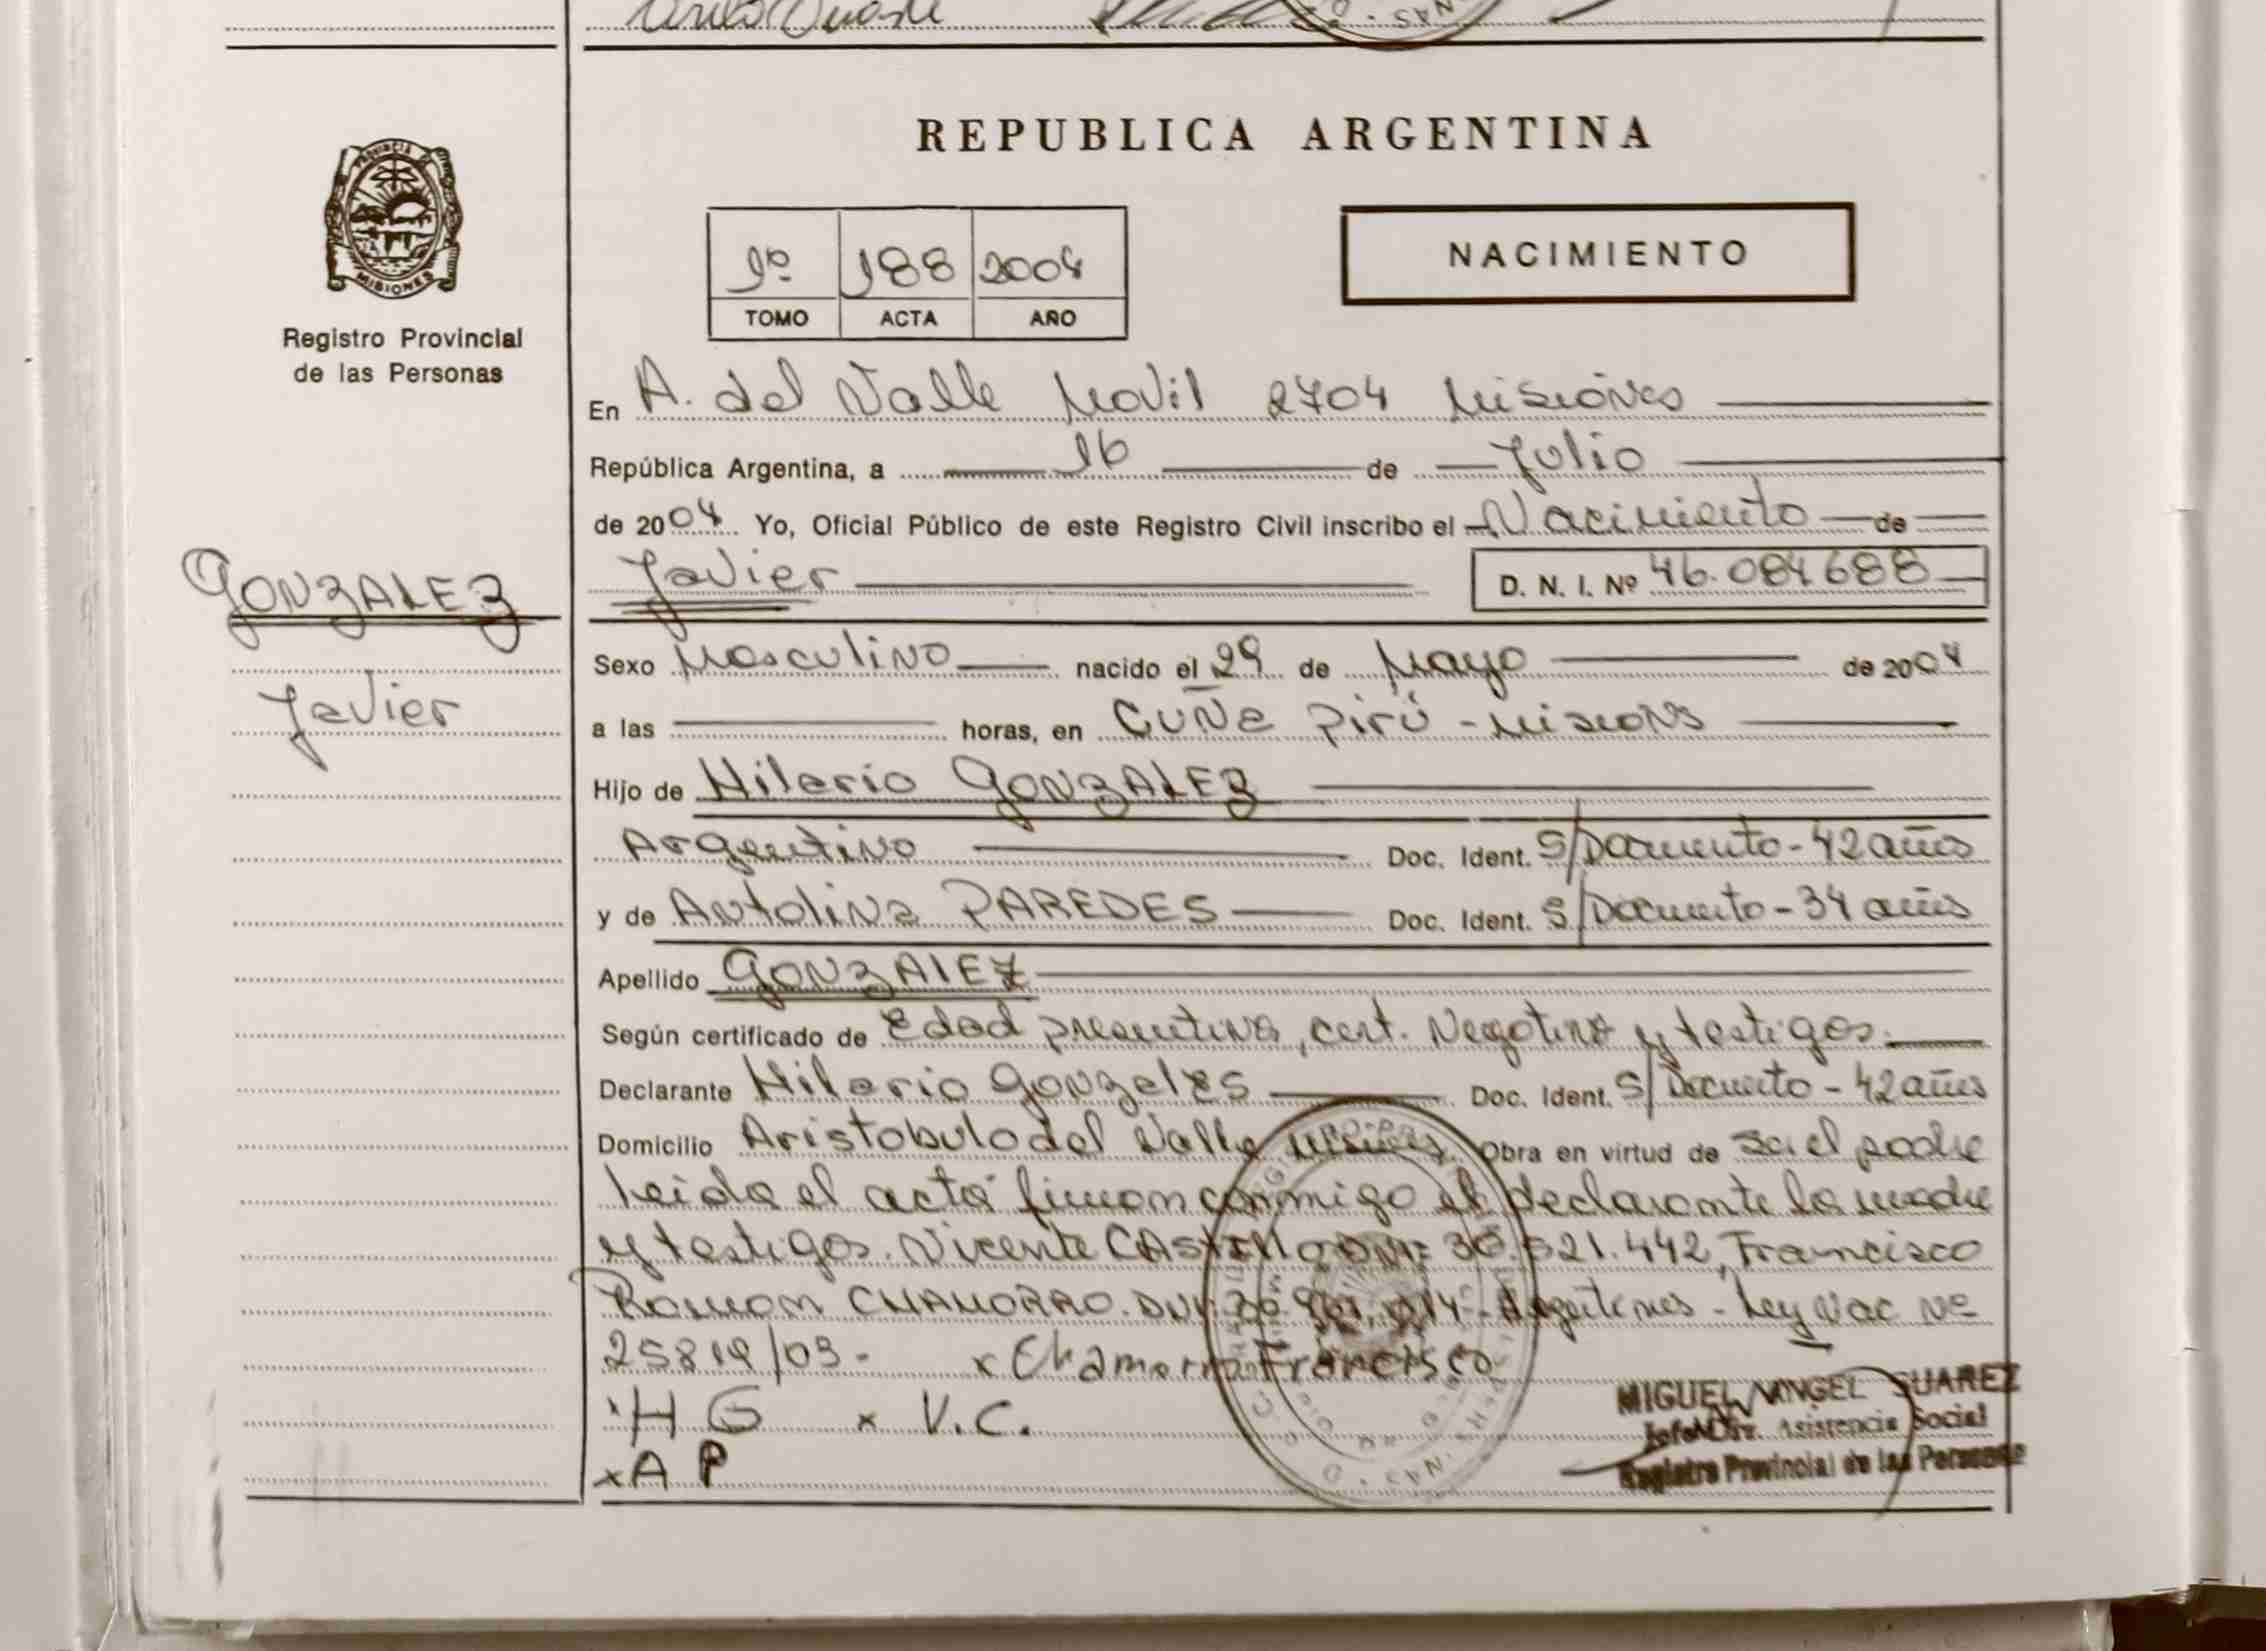 REPUBLICA ARGENTINA
PROVINCIA
MISIONES
Registro Provincial
de las Personas
1º 188 2004
TOMO ACTA AÑO
NACIMIENTO
En A. del Valle Movil 2704 Misiones
República Argentina, a 16 de Julio
de 2004 Yo, Oficial Público de este Registro Civil inscribo el Nacimiento de
GONZALEZ
Javier
Javier D. N. I. Nº 46.084688
Sexo Masculino nacido el 29 de Mayo de 2004
a las horas, en Cuña Pirú - Misions
Hijo de Hilario GONZALEZ
Argentino Doc. Ident. S/Documento - 42 años
y de Antolina PAREDES Doc. Ident. S/Documento - 34 años
Apellido GONZALEZ
Según certificado de Edad presuntiva, cert. Negativo y testigos.
Declarante Hilario Gonzales Doc. Ident. S/Documento - 42 años
Domicilio Aristobulo del Valle Obra en virtud de ser el padre
Leida el acta firman conmigo el declarante la madre
y testigos. Vicente CASTILLO DNI: 30.521.442, Francisco
Ramon CHAMORRO. DNI: Argentinos - Ley Nac Nº
25819/03 - x Chamorro Francisco
H G x V.C.
x A P
MIGUEL ANGEL SUAREZ
Asistencia Social
Registro Provincial de las Personas